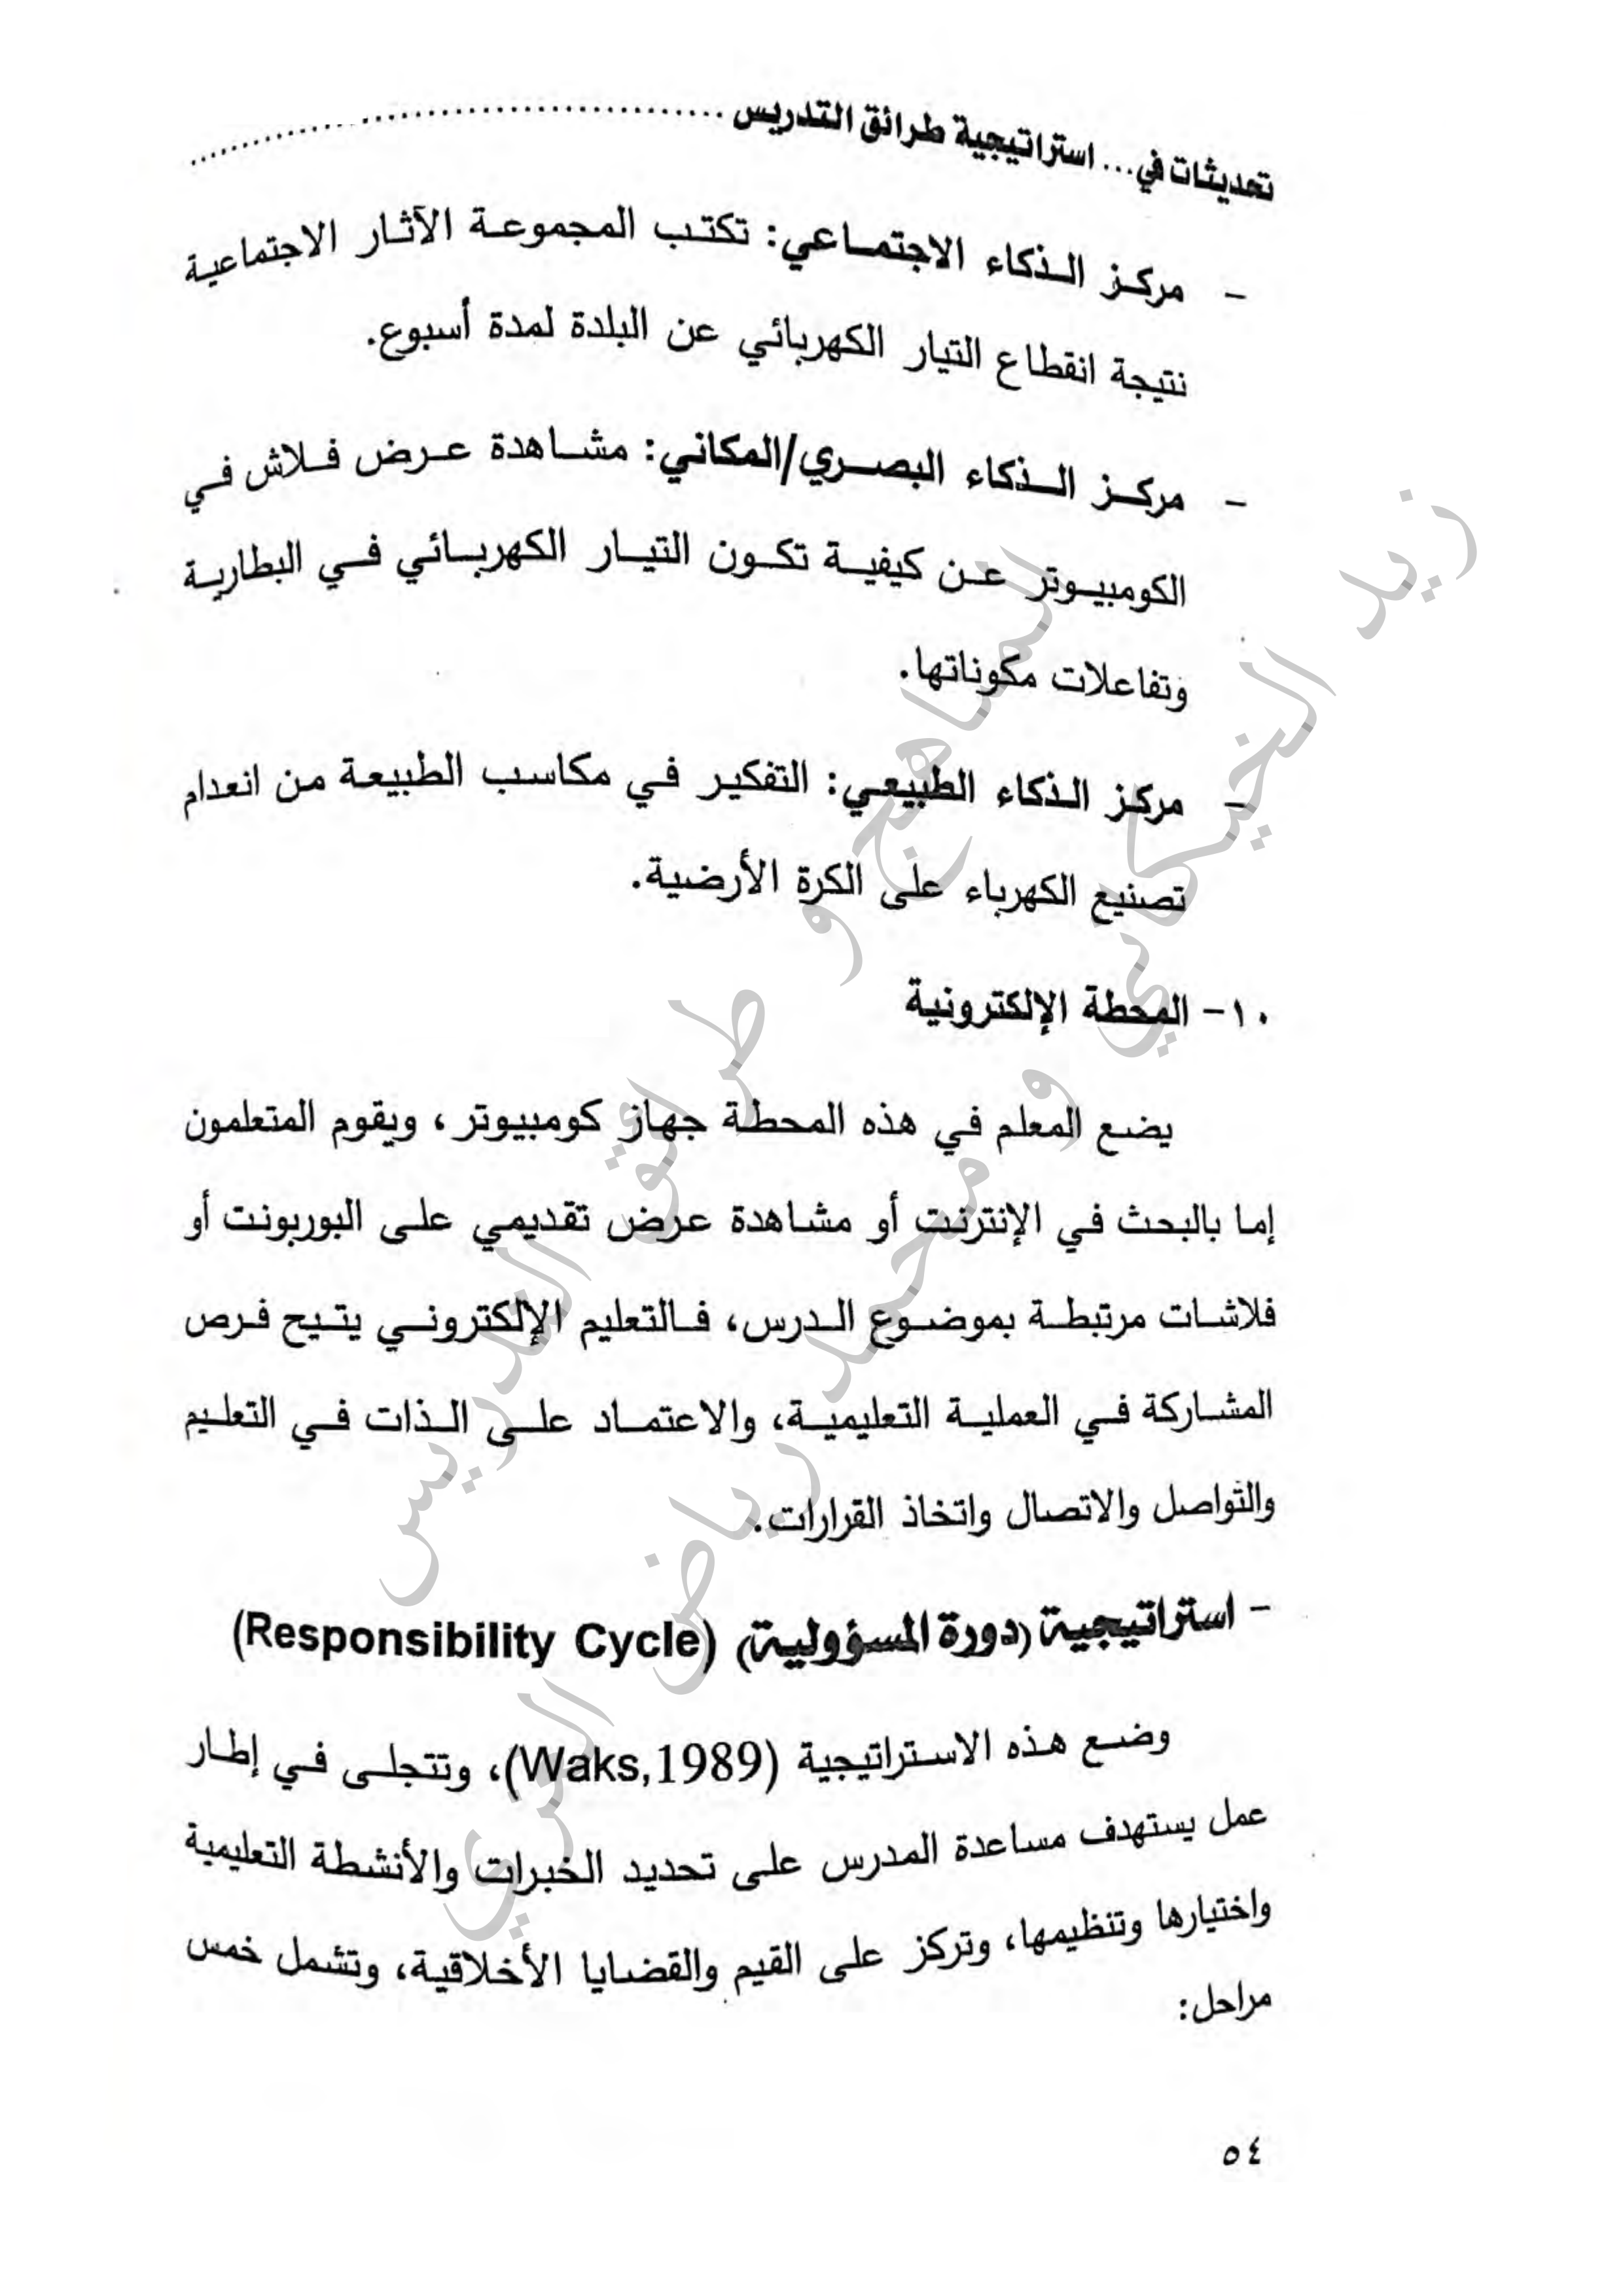 تحديثات في... استراتيجية طرائق التدريس ........................................
- مركز الذكاء الاجتماعي: تكتب المجموعة الآثار الاجتماعية
نتيجة انقطاع التيار الكهربائي عن البلدة لمدة أسبوع.
- مركز الذكاء البصري/المكاني: مشاهدة عرض فلاش في
الكومبيوتر عن كيفية تكون التيار الكهربائي في البطارية
وتفاعلات مكوناتها.
- مركز الذكاء الطبيعي: التفكير في مكاسب الطبيعة من انعدام
تصنيع الكهرباء على الكرة الأرضية.
١٠- المحطة الإلكترونية
يضع المعلم في هذه المحطة جهاز كومبيوتر، ويقوم المتعلمون
إما بالبحث في الإنترنت أو مشاهدة عرض تقديمي على البوربونت أو
فلاشات مرتبطة بموضوع الدرس، فالتعليم الإلكتروني يتيح فرص
المشاركة في العملية التعليمية، والاعتماد على الذات في التعليم
والتواصل والاتصال واتخاذ القرارات.
- استراتيجية (دورة المسؤولية) (Responsibility Cycle)
وضع هذه الاستراتيجية (Waks,1989)، وتتجلى في إطار
عمل يستهدف مساعدة المدرس على تحديد الخبرات والأنشطة التعليمية
واختيارها وتنظيمها، وتركز على القيم والقضايا الأخلاقية، وتشمل خمس
مراحل:
٥٤
المناهج و طرائق التدريس
زيد الخيكاني و محمد رياض الغزي